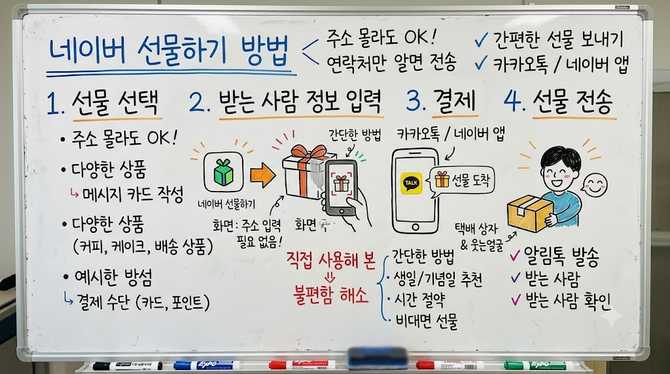 네이버 선물하기 방법
주소 몰라도 OK!
연락처만 알면 전송
✓ 간편한 선물 보내기
✓ 카카오톡 / 네이버 앱
1. 선물 선택
• 주소 몰라도 OK!
• 다양한 상품
↳ 메시지 카드 작성
• 다양한 상품
(커피, 케이크, 배송 상품)
• 예시한 방섬
↳ 결제 수단 (카드, 포인트)
2. 받는 사람 정보 입력
간단한 방법
네이버 선물하기
화면: 주소 입력
필요 없음!
화면
직접 사용해 본
⇩
불편함 해소
3. 결제
카카오톡 / 네이버 앱
TALK
선물 도착
간단한 방법
• 생일/기념일 추천
• 시간 절약
• 비대면 선물
4. 선물 전송
택배 상자
& 웃는얼굴
✓ 알림톡 발송
✓ 받는 사람
✓ 받는 사람 확인
EXPO
EXPO